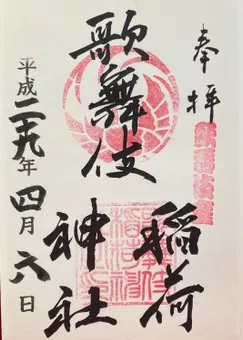 奉拝
歌舞伎
稲荷
神社
平成二十九年四月六日